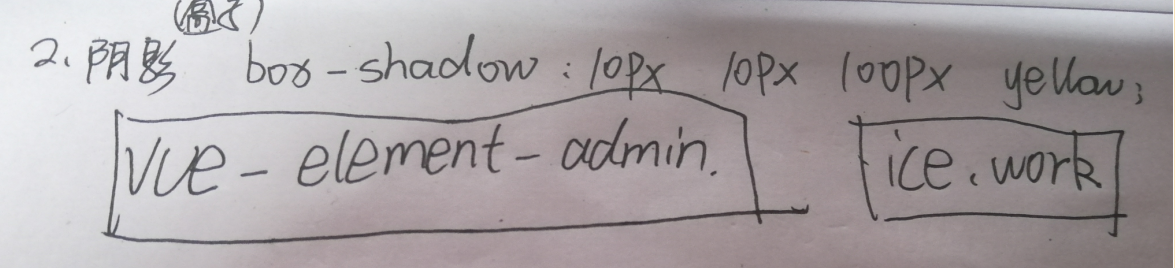 2. 阴影 box-shadow: 10px 10px 100px yellow;
vue-element-admin. ice.work